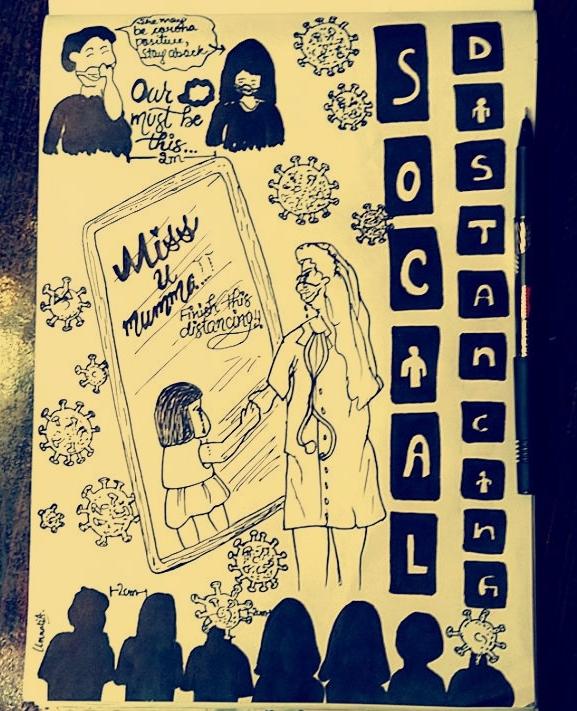 She may
be corona
positive,
Stay aback..
Our
must be
this...
2m
Miss
u
mumma..!!
Finish this
distancing!!
S
O
C
A
L
D
S
T
A
n
c
n
G